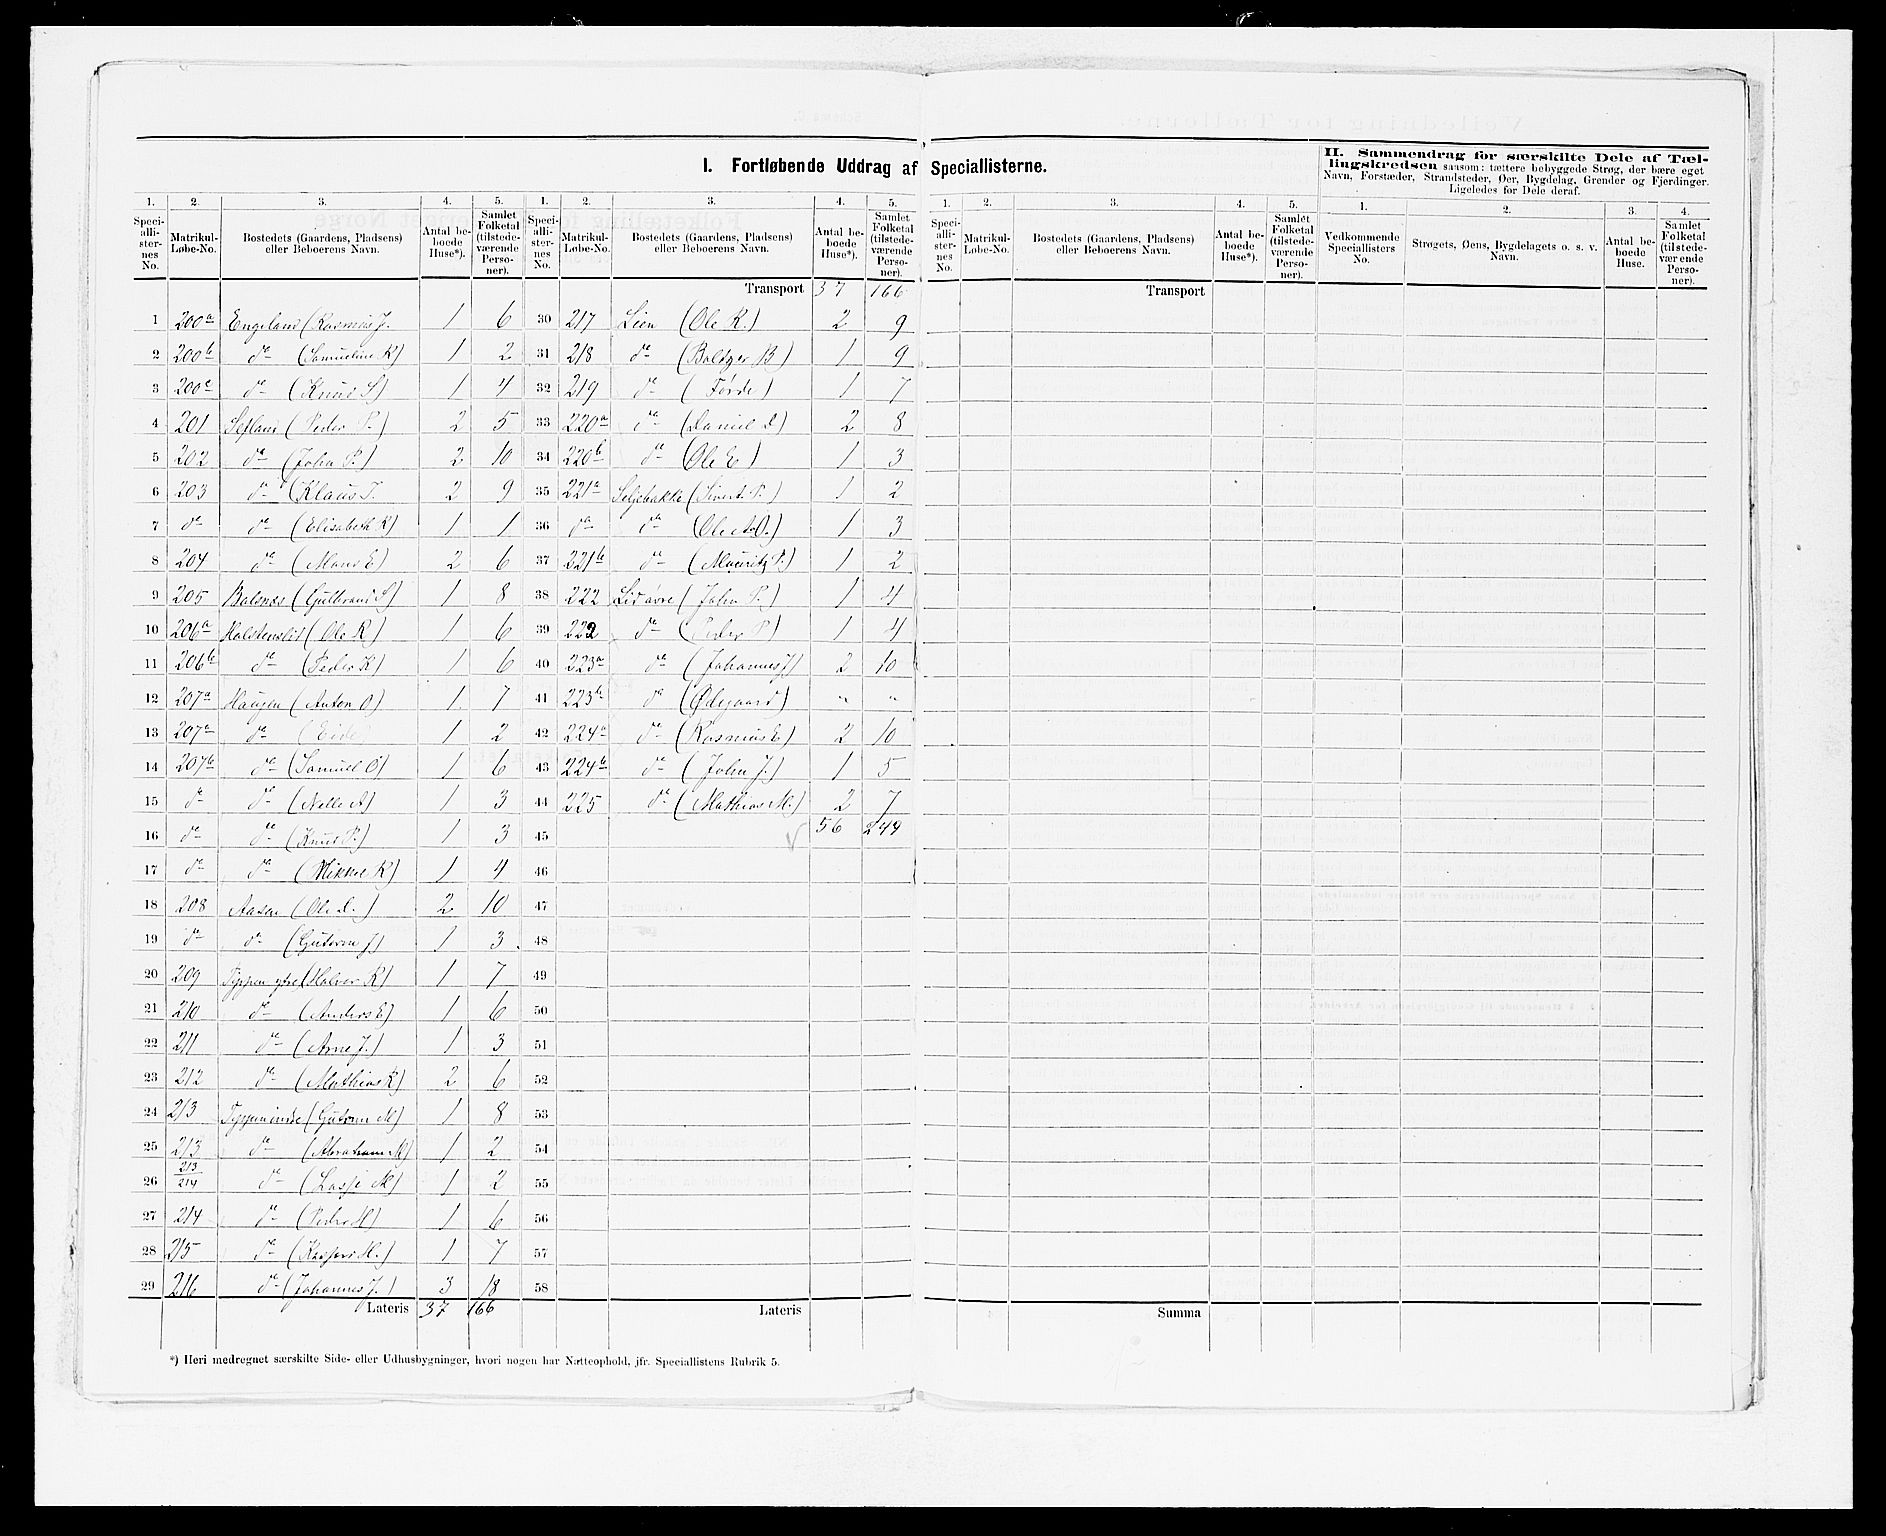 I. Fortløbende Uddrag af Speciallisterne.
II. Sammendrag for særskilte Dele af Tællingskredsen saasom: tættere bebyggede Strøg, der bære eget
Navn, Forstæder, Strandsteder, Øer, Bygdelag, Grender og Fjerdinger.
Ligeledes for Dele deraf.
1. 2. 3. 4. 5. 1. 2. 3. 4. 5. 1. 2. 3. 4. 5. 1. 2. 3. 4.
Speciallisternes No. Matrikul-Løbe-No. Bostedets (Gaardens, Pladsens) eller Beboerens Navn. Antal beboede Huse*). Samlet Folketal (tilstedeværende Personer).
Speciallisternes No. Matrikul-Løbe-No. Bostedets (Gaardens, Pladsens) eller Beboerens Navn. Antal beboede Huse*). Samlet Folketal (tilstedeværende Personer).
Speciallisternes No. Matrikul-Løbe-No. Bostedets (Gaardens, Pladsens) eller Beboerens Navn. Antal beboede Huse*). Samlet Folketal (tilstedeværende Personer).
Vedkommende Speciallisters No. Strøgets, Øens, Bygdelagets o. s. v. Navn. Antal beboede Huse. Samlet Folketal (tilstedeværende Personer).
Transport 37 166 Transport
1 200a Engeland (Rasmus J. 1 6 30 217 Lien (Ole K.) 2 9
2 200b do (Samueline K) 1 2 31 218 do (Baltzer B) 1 9
3 200c do (Knud S) 1 4 32 219 do (Førde) 1 7
4 201 (Peder P.) 2 5 33 220a do (Daniel D) 2 8
5 202 do (John P.) 2 10 34 220b do (Ole E) 1 3
6 203 do (Klaus T. 2 9 35 221a Seljebakke (Sivert P.) 1 2
7 do do (Elisabeth K) 1 1 36 do do (Ole A.O.) 1 3
8 204 do (Mons E) 2 6 37 221b do (Mauritz P.) 1 2
9 205 Balsnes (Gulbrand S) 1 8 38 222 (John P.) 1 4
10 206a (Ole K) 1 6 39 222 do (Peder P) 1 4
11 206b do (Peder K) 1 6 40 223a do (Johannes J) 2 10
12 207a Haugen (Anton O) 1 7 41 223b do (Ødegaard) " "
13 207a do (Eide) 1 2 42 224a do (Rasmus E) 2 10
14 207b do (Samuel O) 1 6 43 224b do (John J.) 1 5
15 do do (Nelle A) 1 3 44 225 do (Mathias M.) 2 7
16 do do (Knud P.) 1 3 45 56 249
17 do do (Mikkel K) 1 4 46
18 208 Aasen (Ole L.) 2 10 47
19 do do (Gutorm J) 1 3 48
20 209 Teppen ytre (Halvor K) 1 7 49
21 210 do (Anders E) 1 6 50
22 211 do (Arne J.) 1 3 51
23 212 do (Mathias K) 2 6 52
24 213 (Gutorm M) 1 8 53
25 213 do (Abraham M) 1 2 54
26 213/214 do (Lasse M) 1 2 55
27 214 do (Peder H) 1 6 56
28 215 do (Kasper H.) 1 7 57
29 216 do (Johannes J.) 3 18 58
Lateris 37 166 Lateris Summa
*) Heri medregnet særskilte Side- eller Udhusbygninger, hvori nogen har Natteophold, jfr. Speciallistens Rubrik 5.